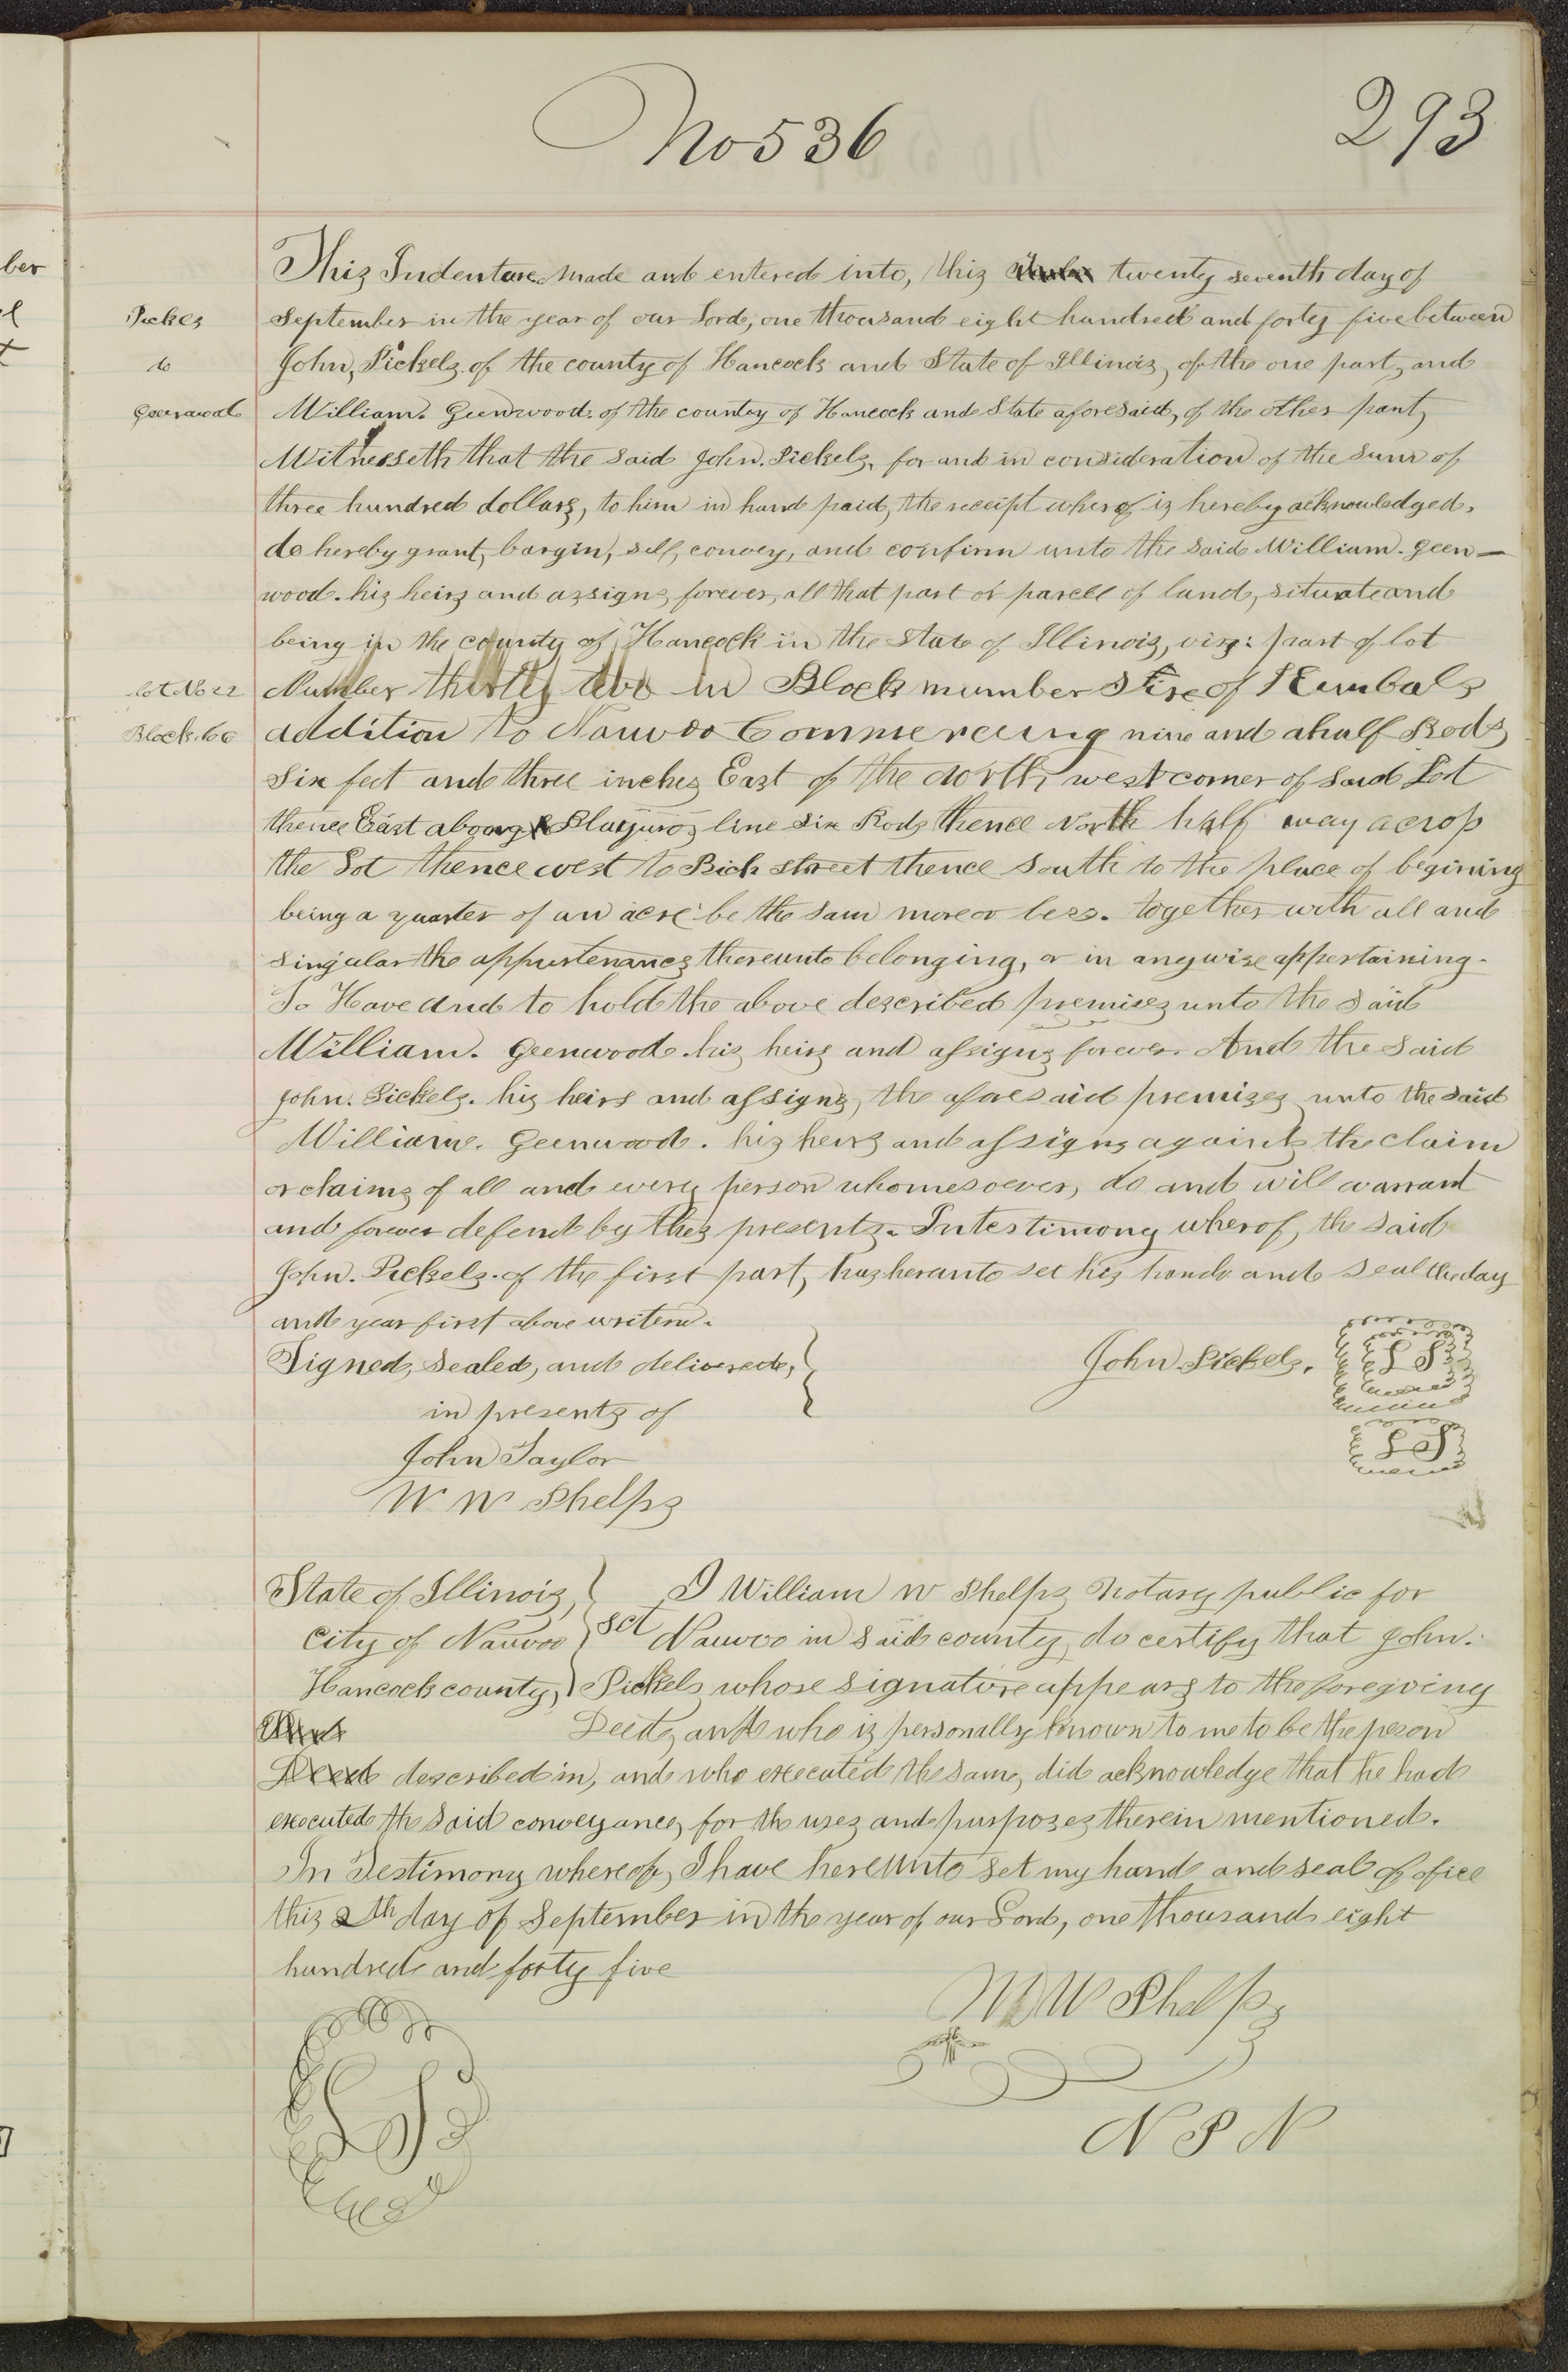 No 536
293
This Indenture made and entered into, this twenty seventh day of
Pickels
September in the year of our Lord, one thousand eight hundred and forty five between
to
John, Pickels of the county of Hancock and State of Illinois, of the one part, and
Geenwood
William. Geenwood. of the county of Hancock and State aforesaid, of the other part,
Witnesseth that the said John. Pickels, for and in consideration of the sum of
three hundred dollars, to him in hand paid, the receipt wherof is hereby acknowledged,
do hereby grant, bargin, sell, convey, and confirm unto the said William. Geen-
wood. his heirs and assigns, forever, all that part or parcell of land, situate and
being in the county of Hancock in the State of Illinois, viz: part of lot
lot No 32
Number thirty two in Block number Six of Kimbals
Block. 6
addition to Nauvoo Commencing nine and a half Rods
Six feet and three inches East of the North west corner of said Lot
thence East line six Rods thence North half way across
the Lot thence west to Rich street thence South to the place of begining
being a quarter of an acre be the sam more or less. together with all and
singular the appurtenances thereunto belonging, or in anywise appertaining.
To Have and to hold the above described premises unto the said
William. Geenwood. his heirs and assigns forever. And the said
John. Pickels. his heirs and assigns, the aforesaid premises unto the said
William. Geenwood. his heirs and assigns against the claim
or claims of all and every person whomesoever, do and will warrant
and forever defend by thes presents. In testimony wherof, the said
John. Pickels. of the first part, has heranto set his hand and seal the day
and year first above writen.
Signed, Sealed, and delivered,
John Pickels.
L S
in presents of
L S
John Taylor
W W Phelps
State of Illinois,
I William W Phelps Notary public for
City of Nauvoo
sct
Nauvoo in said county, do certify that John.
Hancock county,
Pickels whose signature appears to the foregoing
Deed, and who is personally known to me to be the peson
Deed described in, and who executed the same, did acknowledge that he had
executed the said conveyance, for the uses and purposes therein mentioned.
In Testimony whereof, I have hereunto set my hand and seal of office
this 2th day of September in the year of our Lord, one thousand eight
hundred and forty five
W W Phelps
L S
N P N